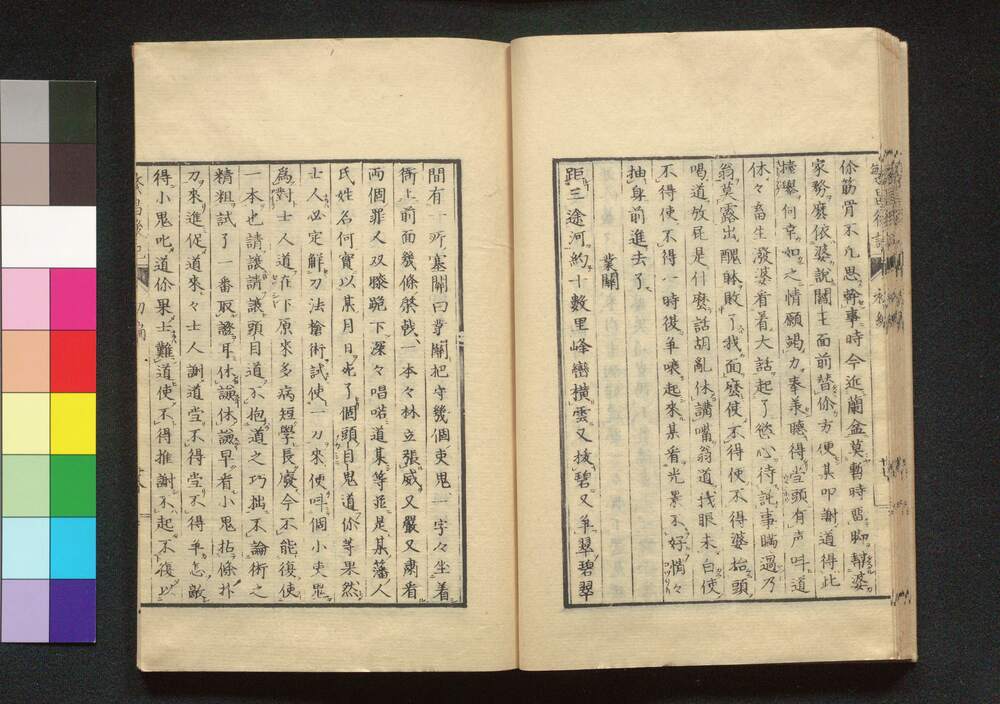 你筋骨不凡思幹事時今近蘭盆莫暫時點脚幇婆
家務麼依婆說閻王面前替你方便某叩謝道得此
擡擧何幸如之情願竭力奉義聽得當頭有声叫道
休々畜生發婆看着大話起了慾心待託事瞞過乃
翁莫露出醜躰敗了我面麼使不得便不得婆抬頭
喝道放屁是什麼話胡亂休講嘴翁道找眼未白使
不得使不得一時復爭嚷起來某看光景不好悄々
抽身前進去了
業關
距三途河約十數里峰巒横雲又披碧又爭翠碧翠
間有一所塞關曰業關把守幾個吏鬼一字々坐着
衙上前面幾條棨戟一本々林立張威又嚴又肅看
兩個罪人双膝跪下深々唱喏道某等並是某藩人
氏姓名何實以某月日死了個頭目鬼道你等果然
士人必定解刀法槍術試使一刀來便叫個小吏
爲對士人道在下原來多病短學長廢今不能復使
一本也請讓請讓頭目道不抱道之巧拙不論術之
精粗試了一番取證耳休讓休讓早看小鬼拈條朴
刀來進促道來々士人謝道當不得當不得爭怎敵
得小鬼叱道你果士難道使不得推謝不起不復以